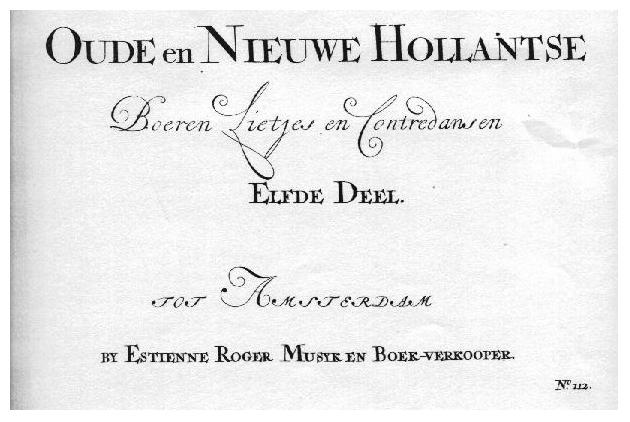 OUDE en NIEUWE HOLLANTSE
Boeren Lietjes en Contredansen
ELFDE DEEL.
TOT AMSTERDAM
BY ESTIENNE ROGER MUSYK EN BOEK-VERKOOPER.
No 112.